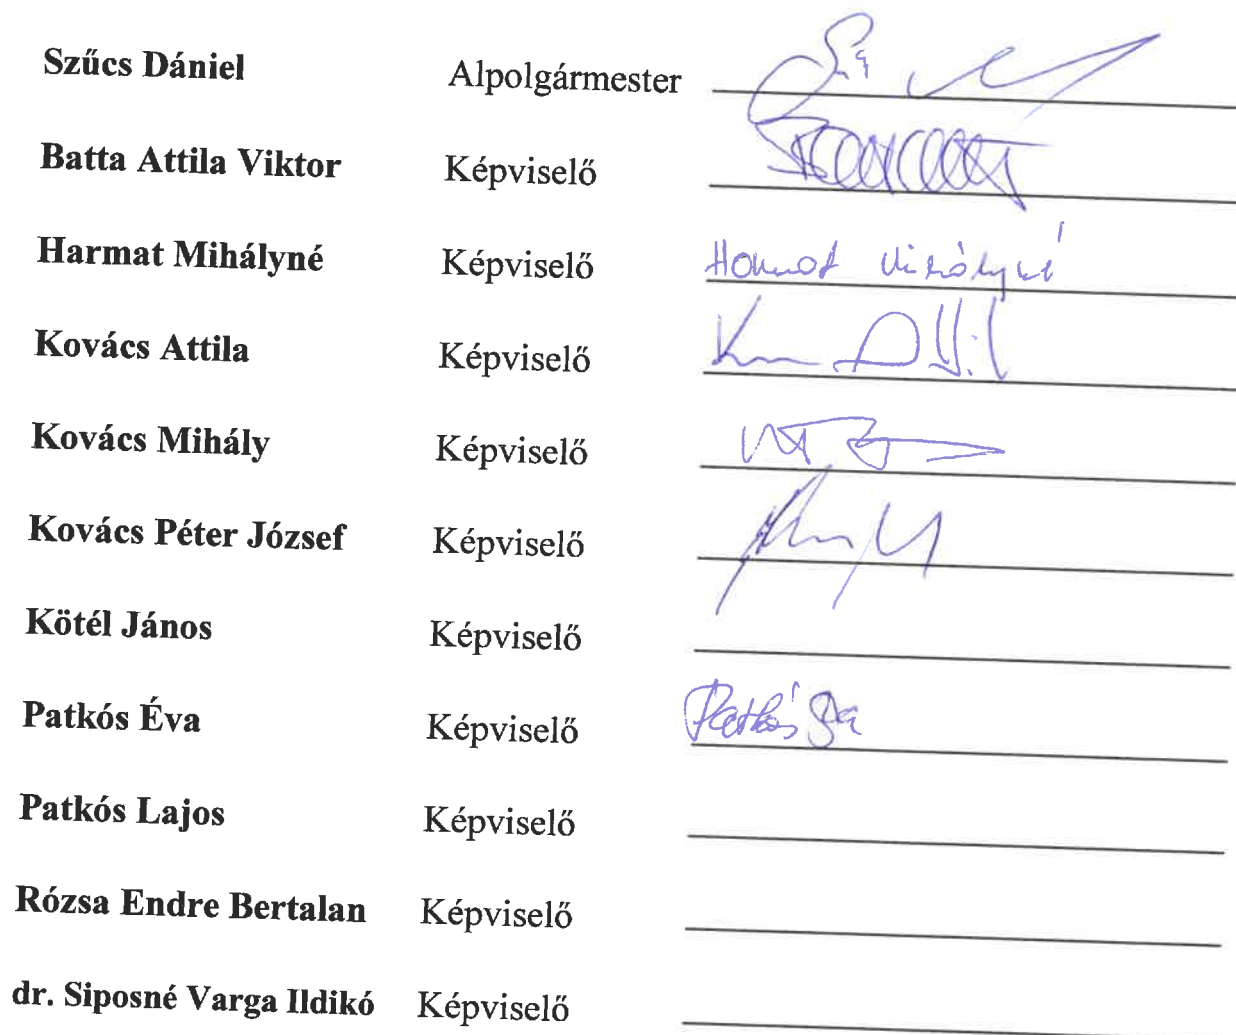 Szűcs Dániel Alpolgármester
Batta Attila Viktor Képviselő
Harmat Mihályné Képviselő Harmat Mihályné
Kovács Attila Képviselő
Kovács Mihály Képviselő
Kovács Péter József Képviselő
Kötél János Képviselő
Patkós Éva Képviselő Patkós Éva
Patkós Lajos Képviselő
Rózsa Endre Bertalan Képviselő
dr. Siposné Varga Ildikó Képviselő